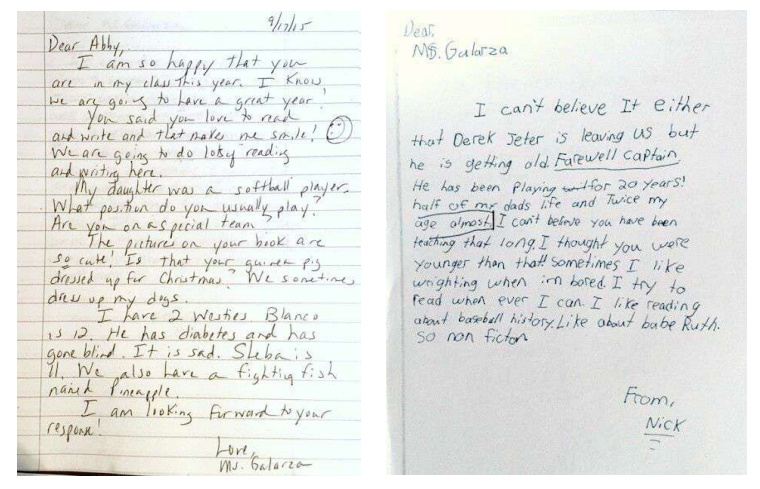 9/17/15
Dear Abby,
I am so happy that you
are in my class this year. I know
we are going to have a great year!
You said you love to read
and write and that makes me smile!
We are going to do lotsy reading
and writing here.
My daughter was a softball player.
What position do you usually play?
Are you on a special team?
The pictures on your book are
so cute! Is that your guinea pig
dressed up for Christmas? We sometimes
dress up my dogs.
I have 2 Westies. Blanco
is 12. He has diabetes and has
gone blind. It is sad. Sheba is
11. We also have a fighting fish
named Pineapple.
I am looking forward to your
response!
Love,
Ms. Galarza
Dear,
MS. Galarza
I can't believe It either
that Derek Jeter is leaving us but
he is getting old Farewell Captain
He has been Playing for 20 years!
half of my dads life and Twice my
age almost I can't believe you have been
teaching that long. I thought you were
younger than that! sometimes I like
wrighting when im bored I try to
read when ever I can. I like reading
about baseball history. Like about babe Ruth.
So non ficton
From,
NicK